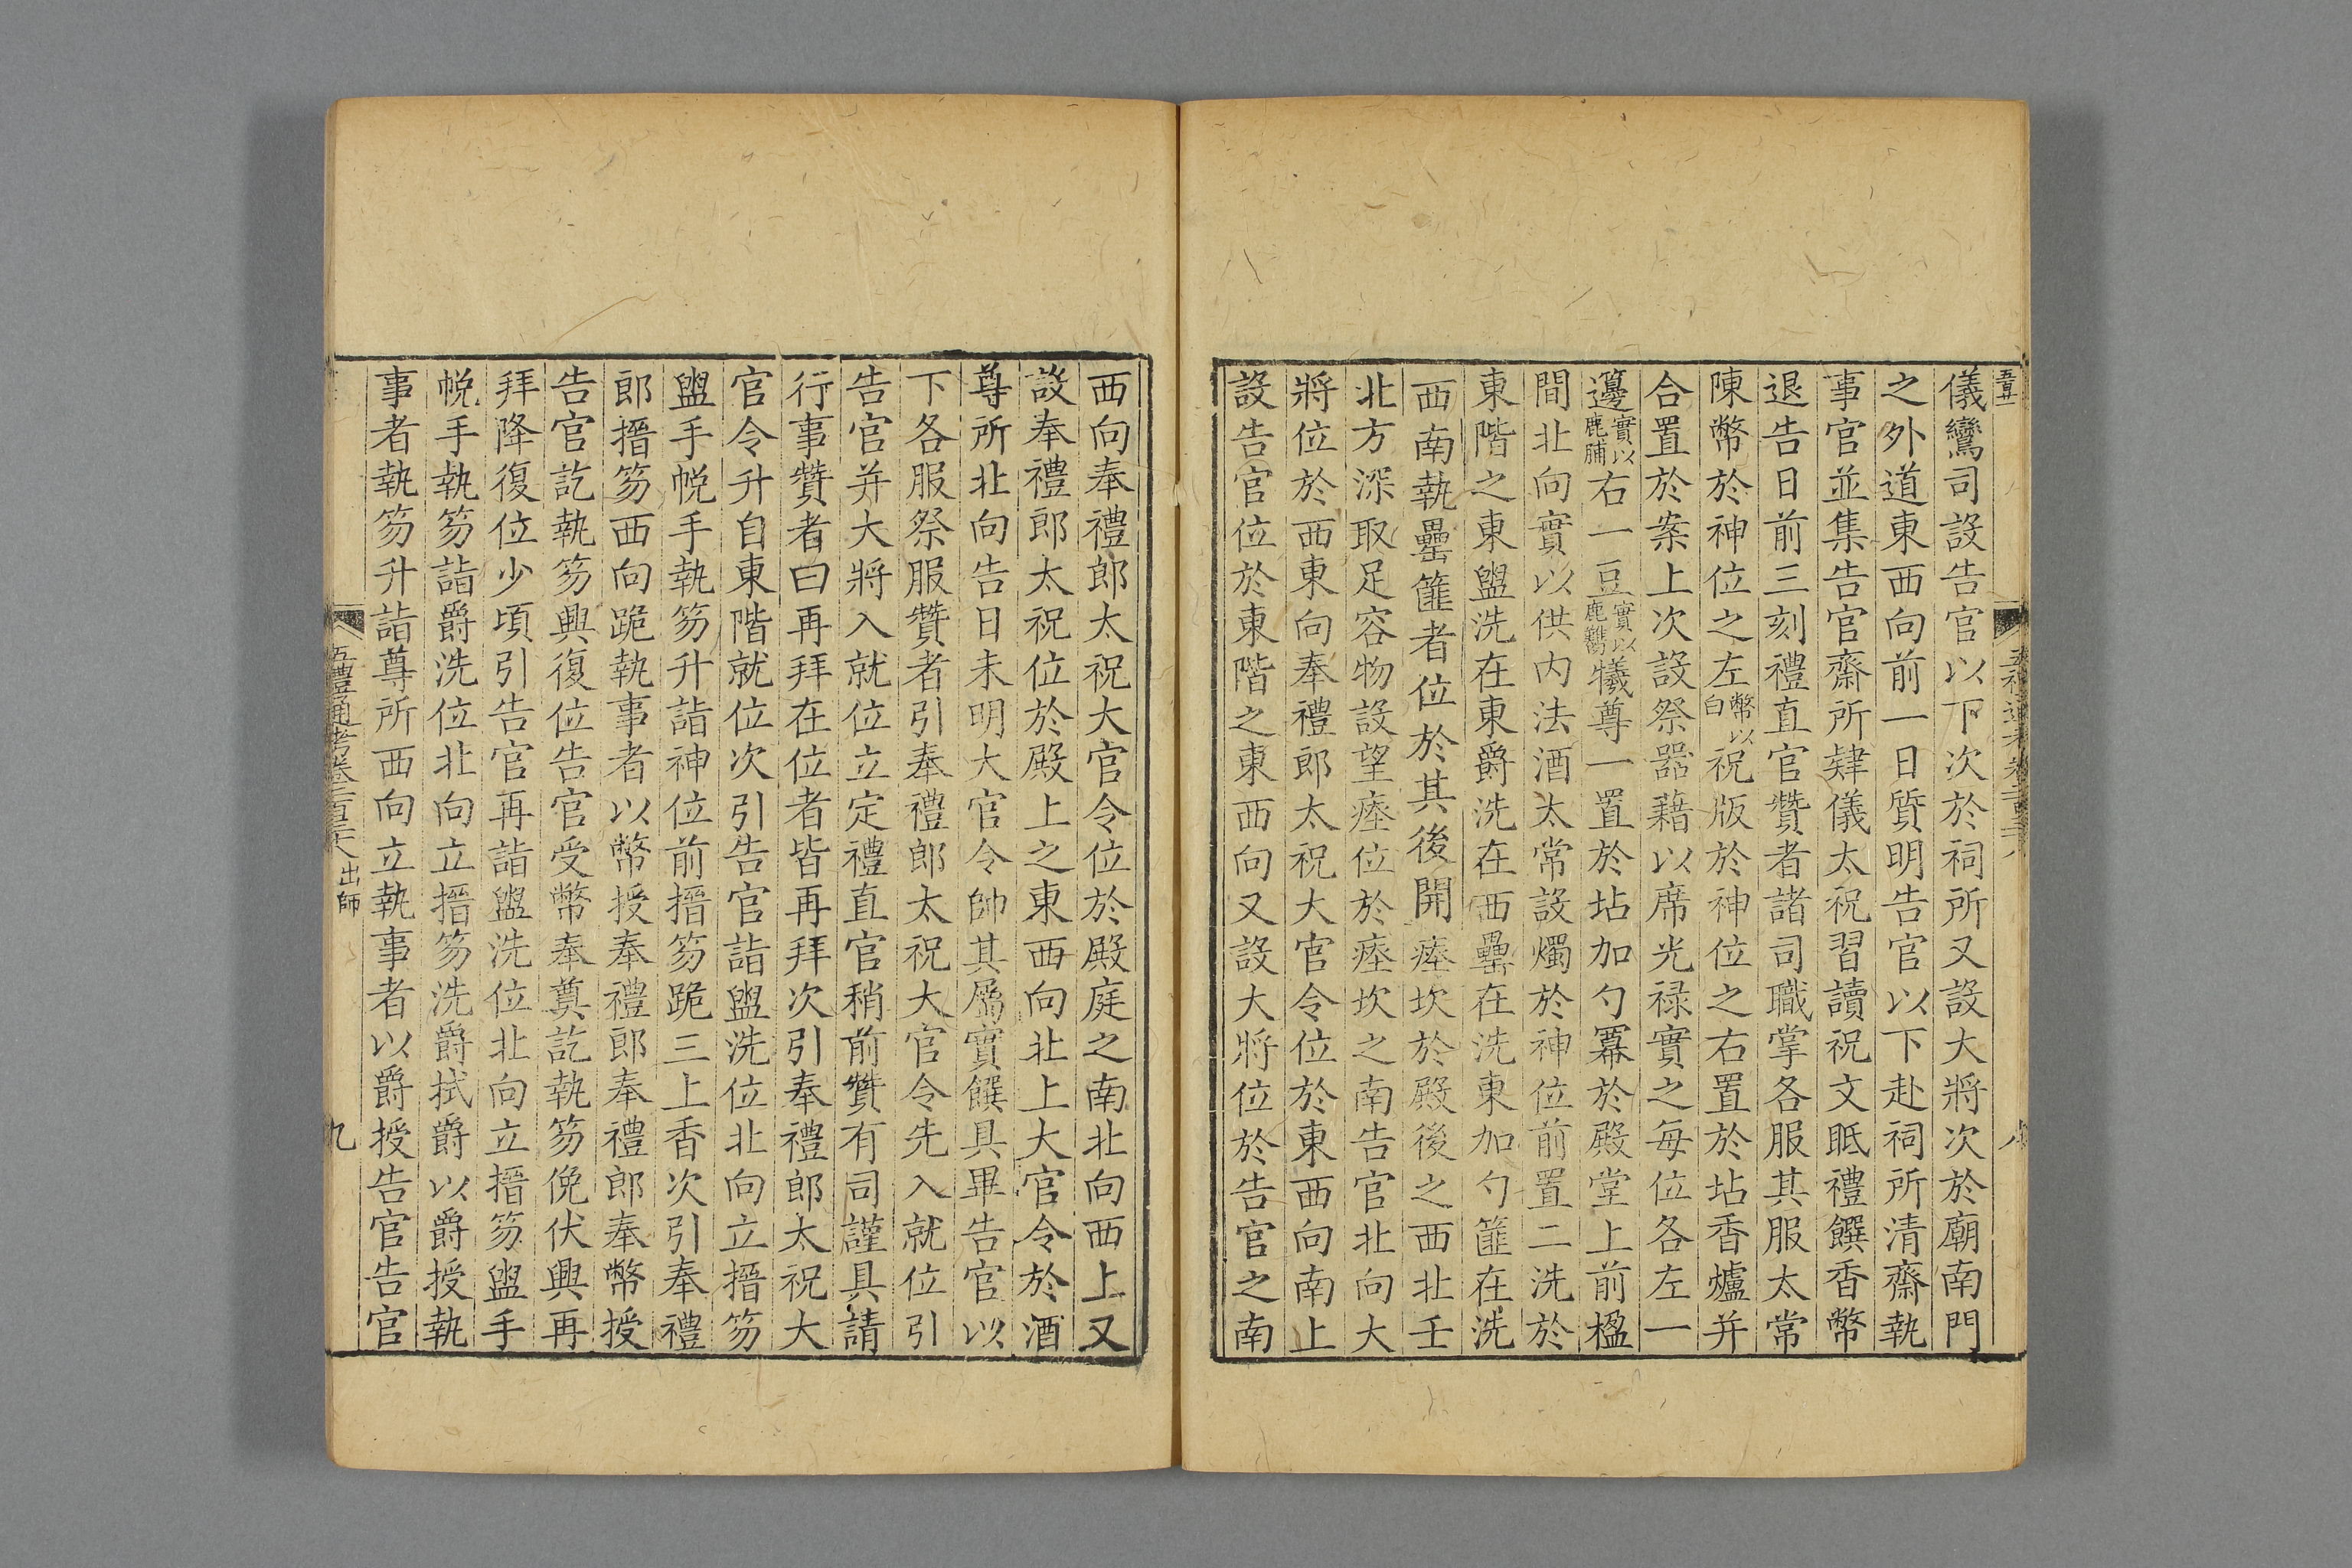 儀鸞司設告官以下次於祠所又設大將次於廟南門
之外道東西向前一日質明告官以下赴祠所清齋執
事官並集告官齋所肄儀太祝習讀祝文眡禮饌香幣
退告日前三刻禮直官贊者諸司職掌各服其服太常
陳幣於神位之左幣以白祝版於神位之右置於坫香爐并
合置於案上次設祭器藉以席光祿實之每位各左一
籩實以鹿脯右一豆實以鹿臡犧尊一置於坫加勺冪於殿堂上前楹
間北向實以供内法酒太常設燭於神位前置二洗於
東階之東盥洗在東爵洗在西罍在洗東加勺篚在洗
西南執罍篚者位於其後開瘞坎於殿後之西北壬
北方深取足容物設望瘞位於瘞坎之南告官北向大
將位於西東向奉禮郎太祝大官令位於東西向南上
設告官位於東階之東西向又設大將位於告官之南
西向奉禮郎太祝大官令位於殿庭之南北向西上又
設奉禮郎太祝位於殿上之東西向北上大官令於酒
尊所北向告日未明大官令帥其屬實饌具畢告官以
下各服祭服贊者引奉禮郎太祝大官令先入就位引
告官并大將入就位立定禮直官稍前贊有司謹具請
行事贊者曰再拜在位者皆再拜次引奉禮郎太祝大
官令升自東階就位次引告官詣盥洗位北向立搢笏
盥手帨手執笏升詣神位前搢笏跪三上香次引奉禮
郎搢笏西向跪執事者以幣授奉禮郎奉禮郎奉幣授
告官訖執笏興復位告官受幣奉奠訖執笏俛伏興再
拜降復位少頃引告官再詣盥洗位北向立搢笏盥手
帨手執笏詣爵洗位北向立搢笏洗爵拭爵以爵授執
事者執笏升詣尊所西向立執事者以爵授告官告官
五禮通考卷二百三十八 出師
九